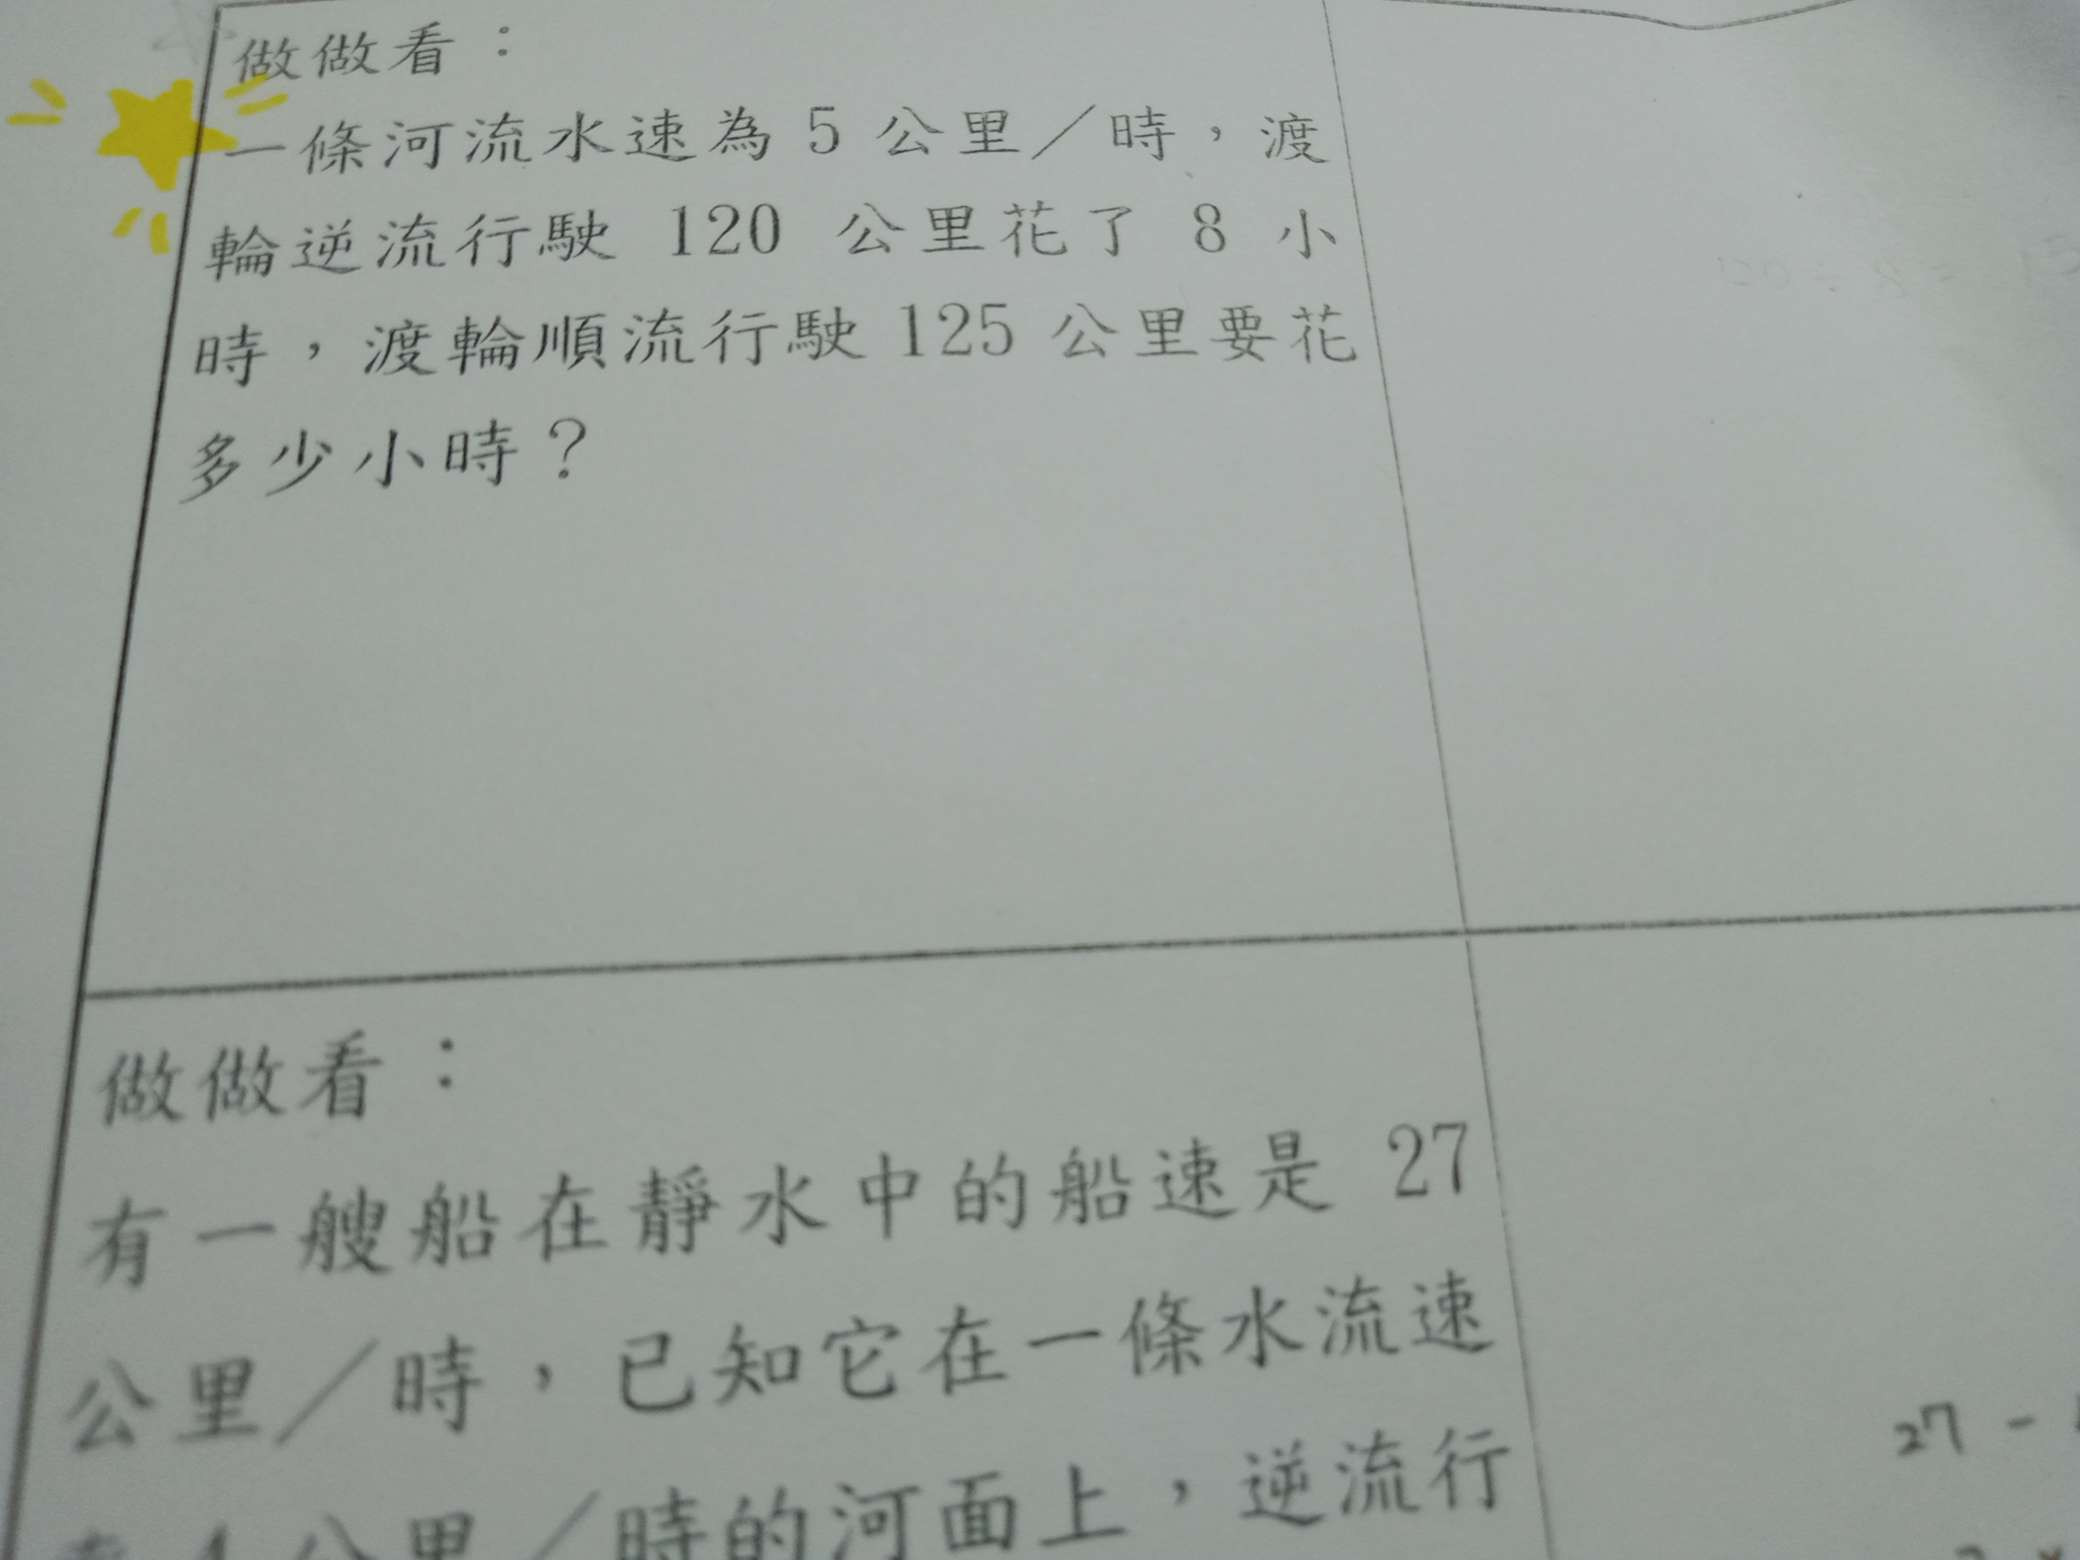 做做看：
一條河流水速為 5 公里／時，渡
輪逆流行駛 120 公里花了 8 小
時，渡輪順流行駛 125 公里要花
多少小時？
120 ÷ 8 = 15
做做看：
有一艘船在靜水中的船速是 27
公里／時，已知它在一條水流速
27 -
公里／時的河面上，逆流行